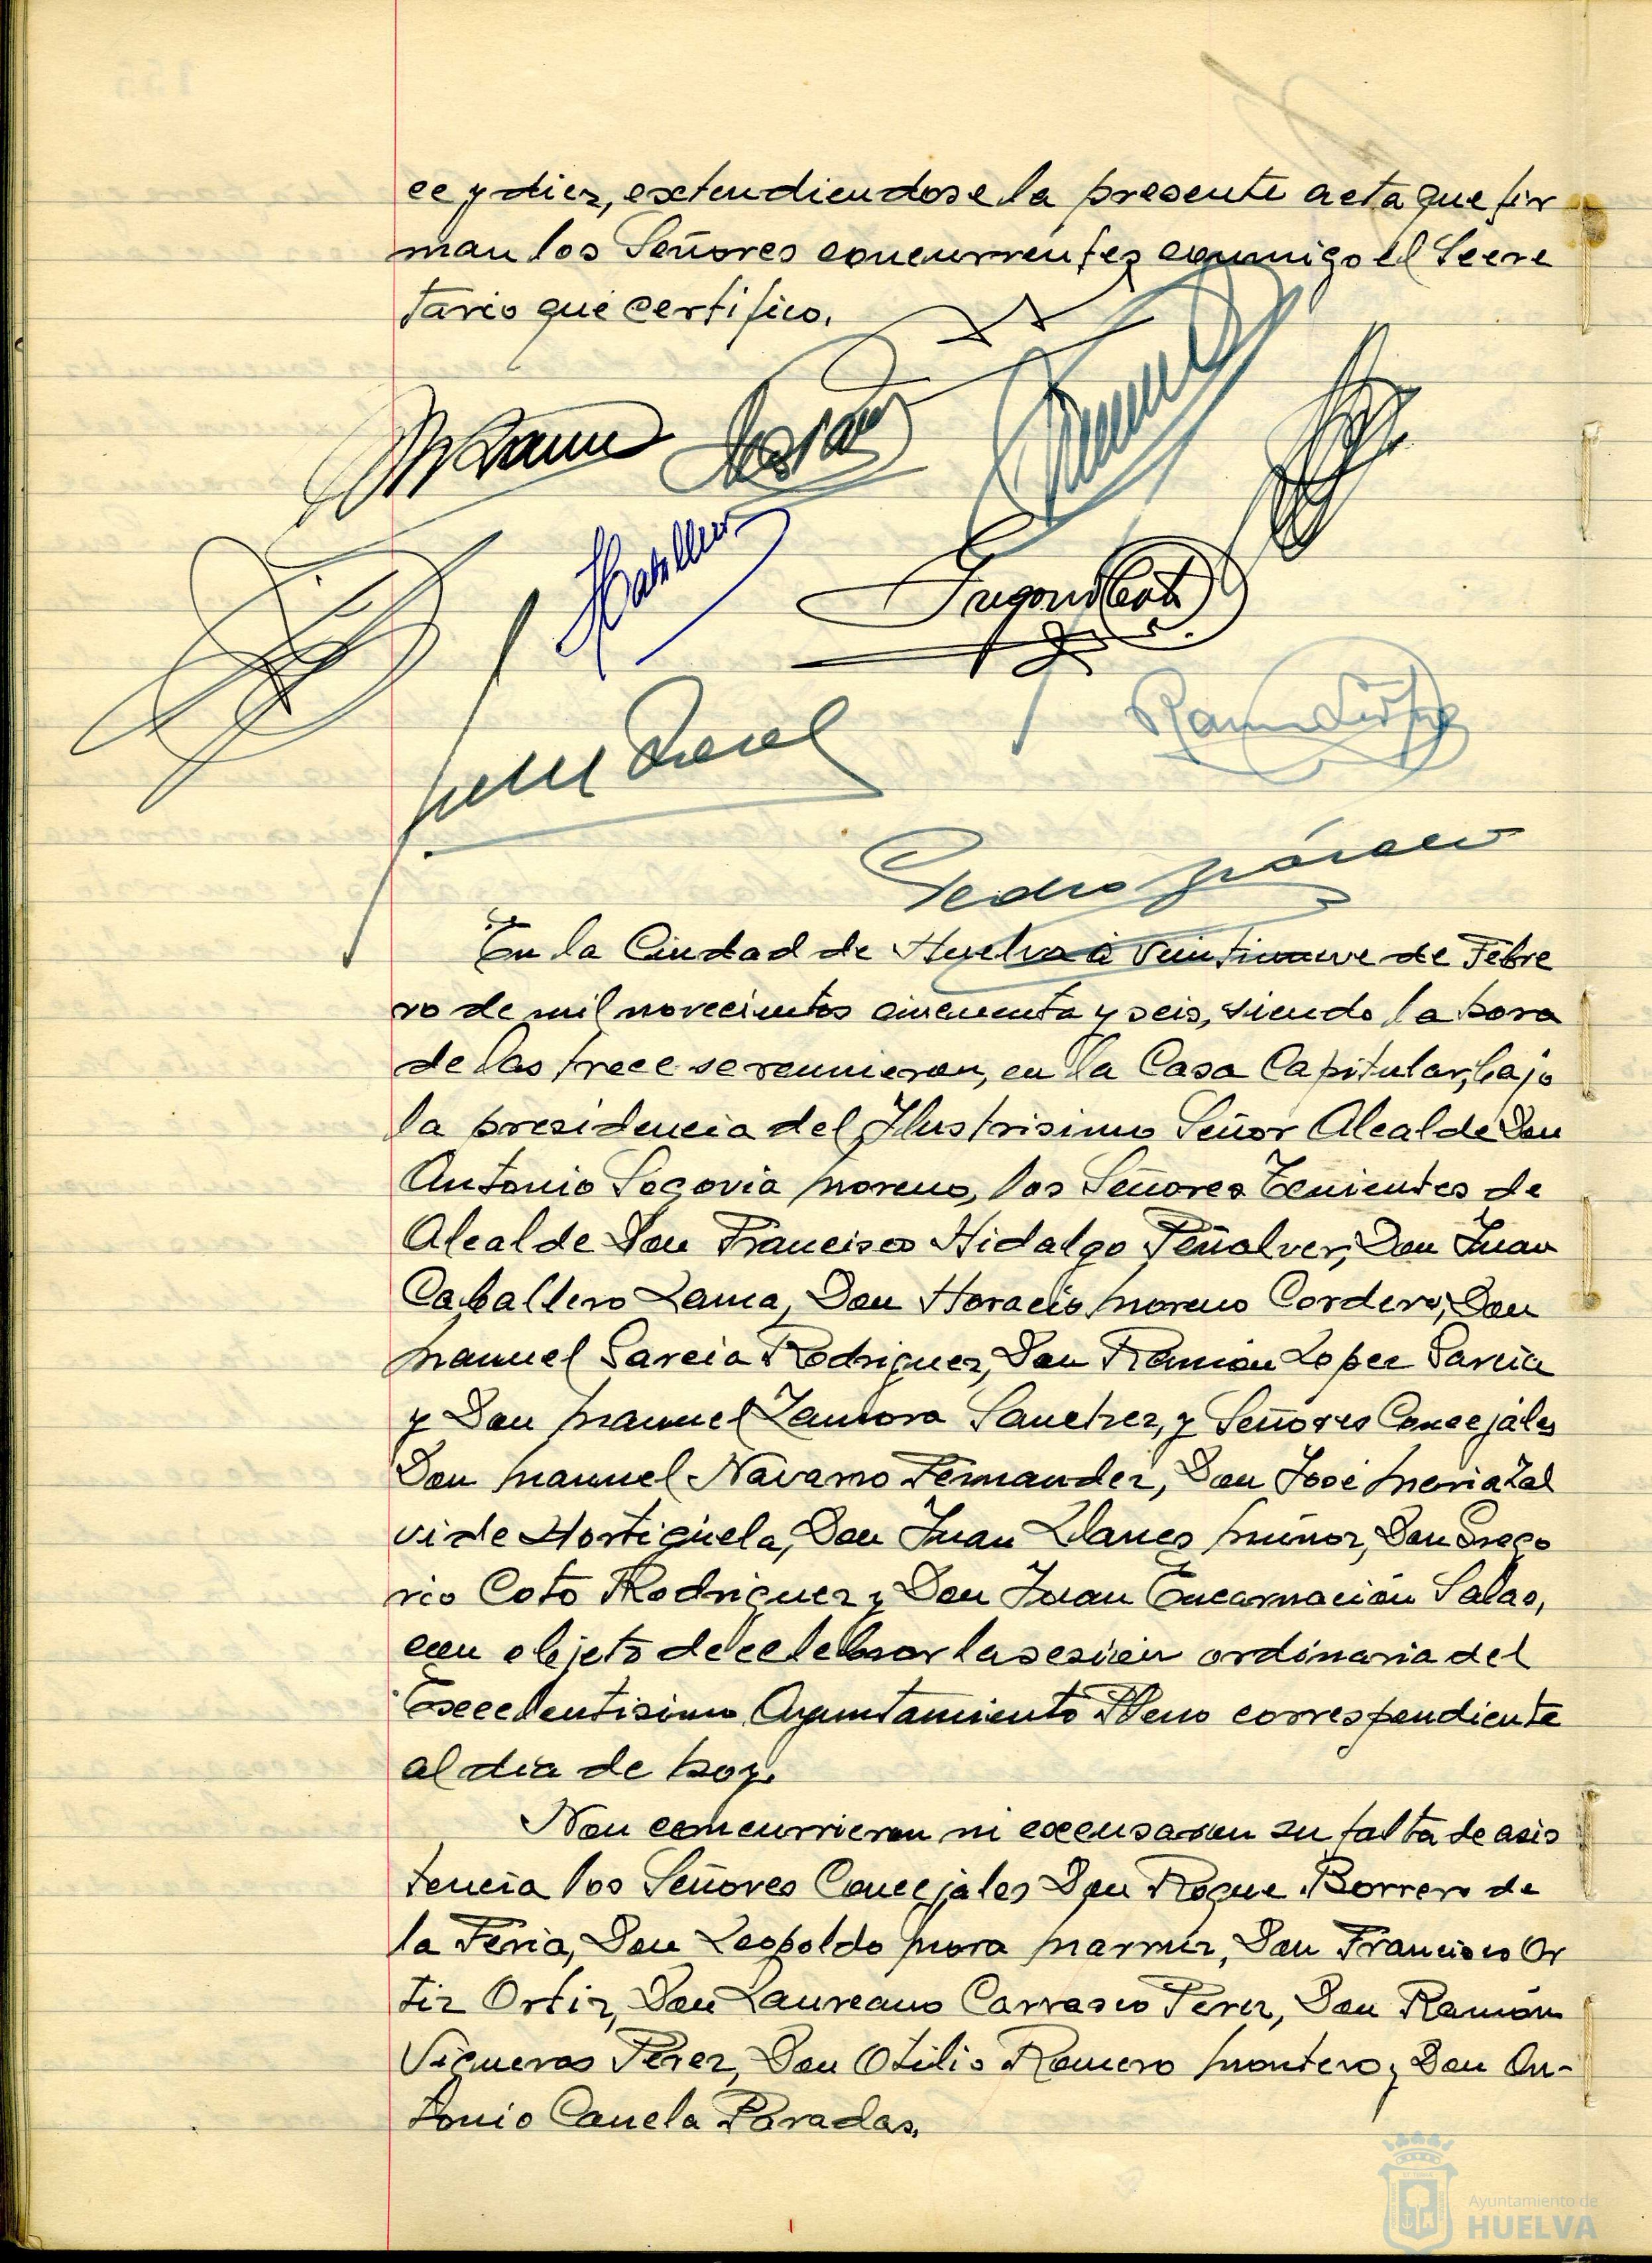 ce y diez, extendiendose la presente acta que fir
man los Señores concurrentes conmigo el Secre
tario que certifico.
Gregorio Coto
En la Ciudad de Huelva a veintinueve de Febre
ro de mil novecientos cincuenta y seis, siendo la hora
de las trece se reunieron, en la Casa Capitular, bajo
la presidencia del Ilustrisimo Señor Alcalde Don
Antonio Segovia Moreno, los Señores Tenientes de
Alcalde Don Francisco Hidalgo Peñalver, Don Juan
Caballero Lama, Don Horacio Moreno Cordero, Don
Manuel Garcia Rodriguez, Don Ramón Lopez Garcia
y Don Manuel Zamora Sanchez, y Señores Concejales
Don Manuel Navarro Fernandez, Don José Maria Zal
vide Hortigüela, Don Juan Llanes Muñoz, Don Grego
rio Coto Rodriguez y Don Juan Encarnación Salas,
con objeto de celebrar la sesión ordinaria del
Excelentisimo Ayuntamiento Pleno correspondiente
al dia de hoy.
Non concurrieron ni excusaron su falta de asis
tencia los Señores Concejales Don Roque Borrero de
la Feria, Don Leopoldo Mora Don Francisco Or
tiz Ortiz, Don Laureano Carrasco Perez, Don Ramón
Vigueras Pérez, Don Otilio Romero Montero y Don An-
tonio Canela Paradas.
Ayuntamiento de
HUELVA